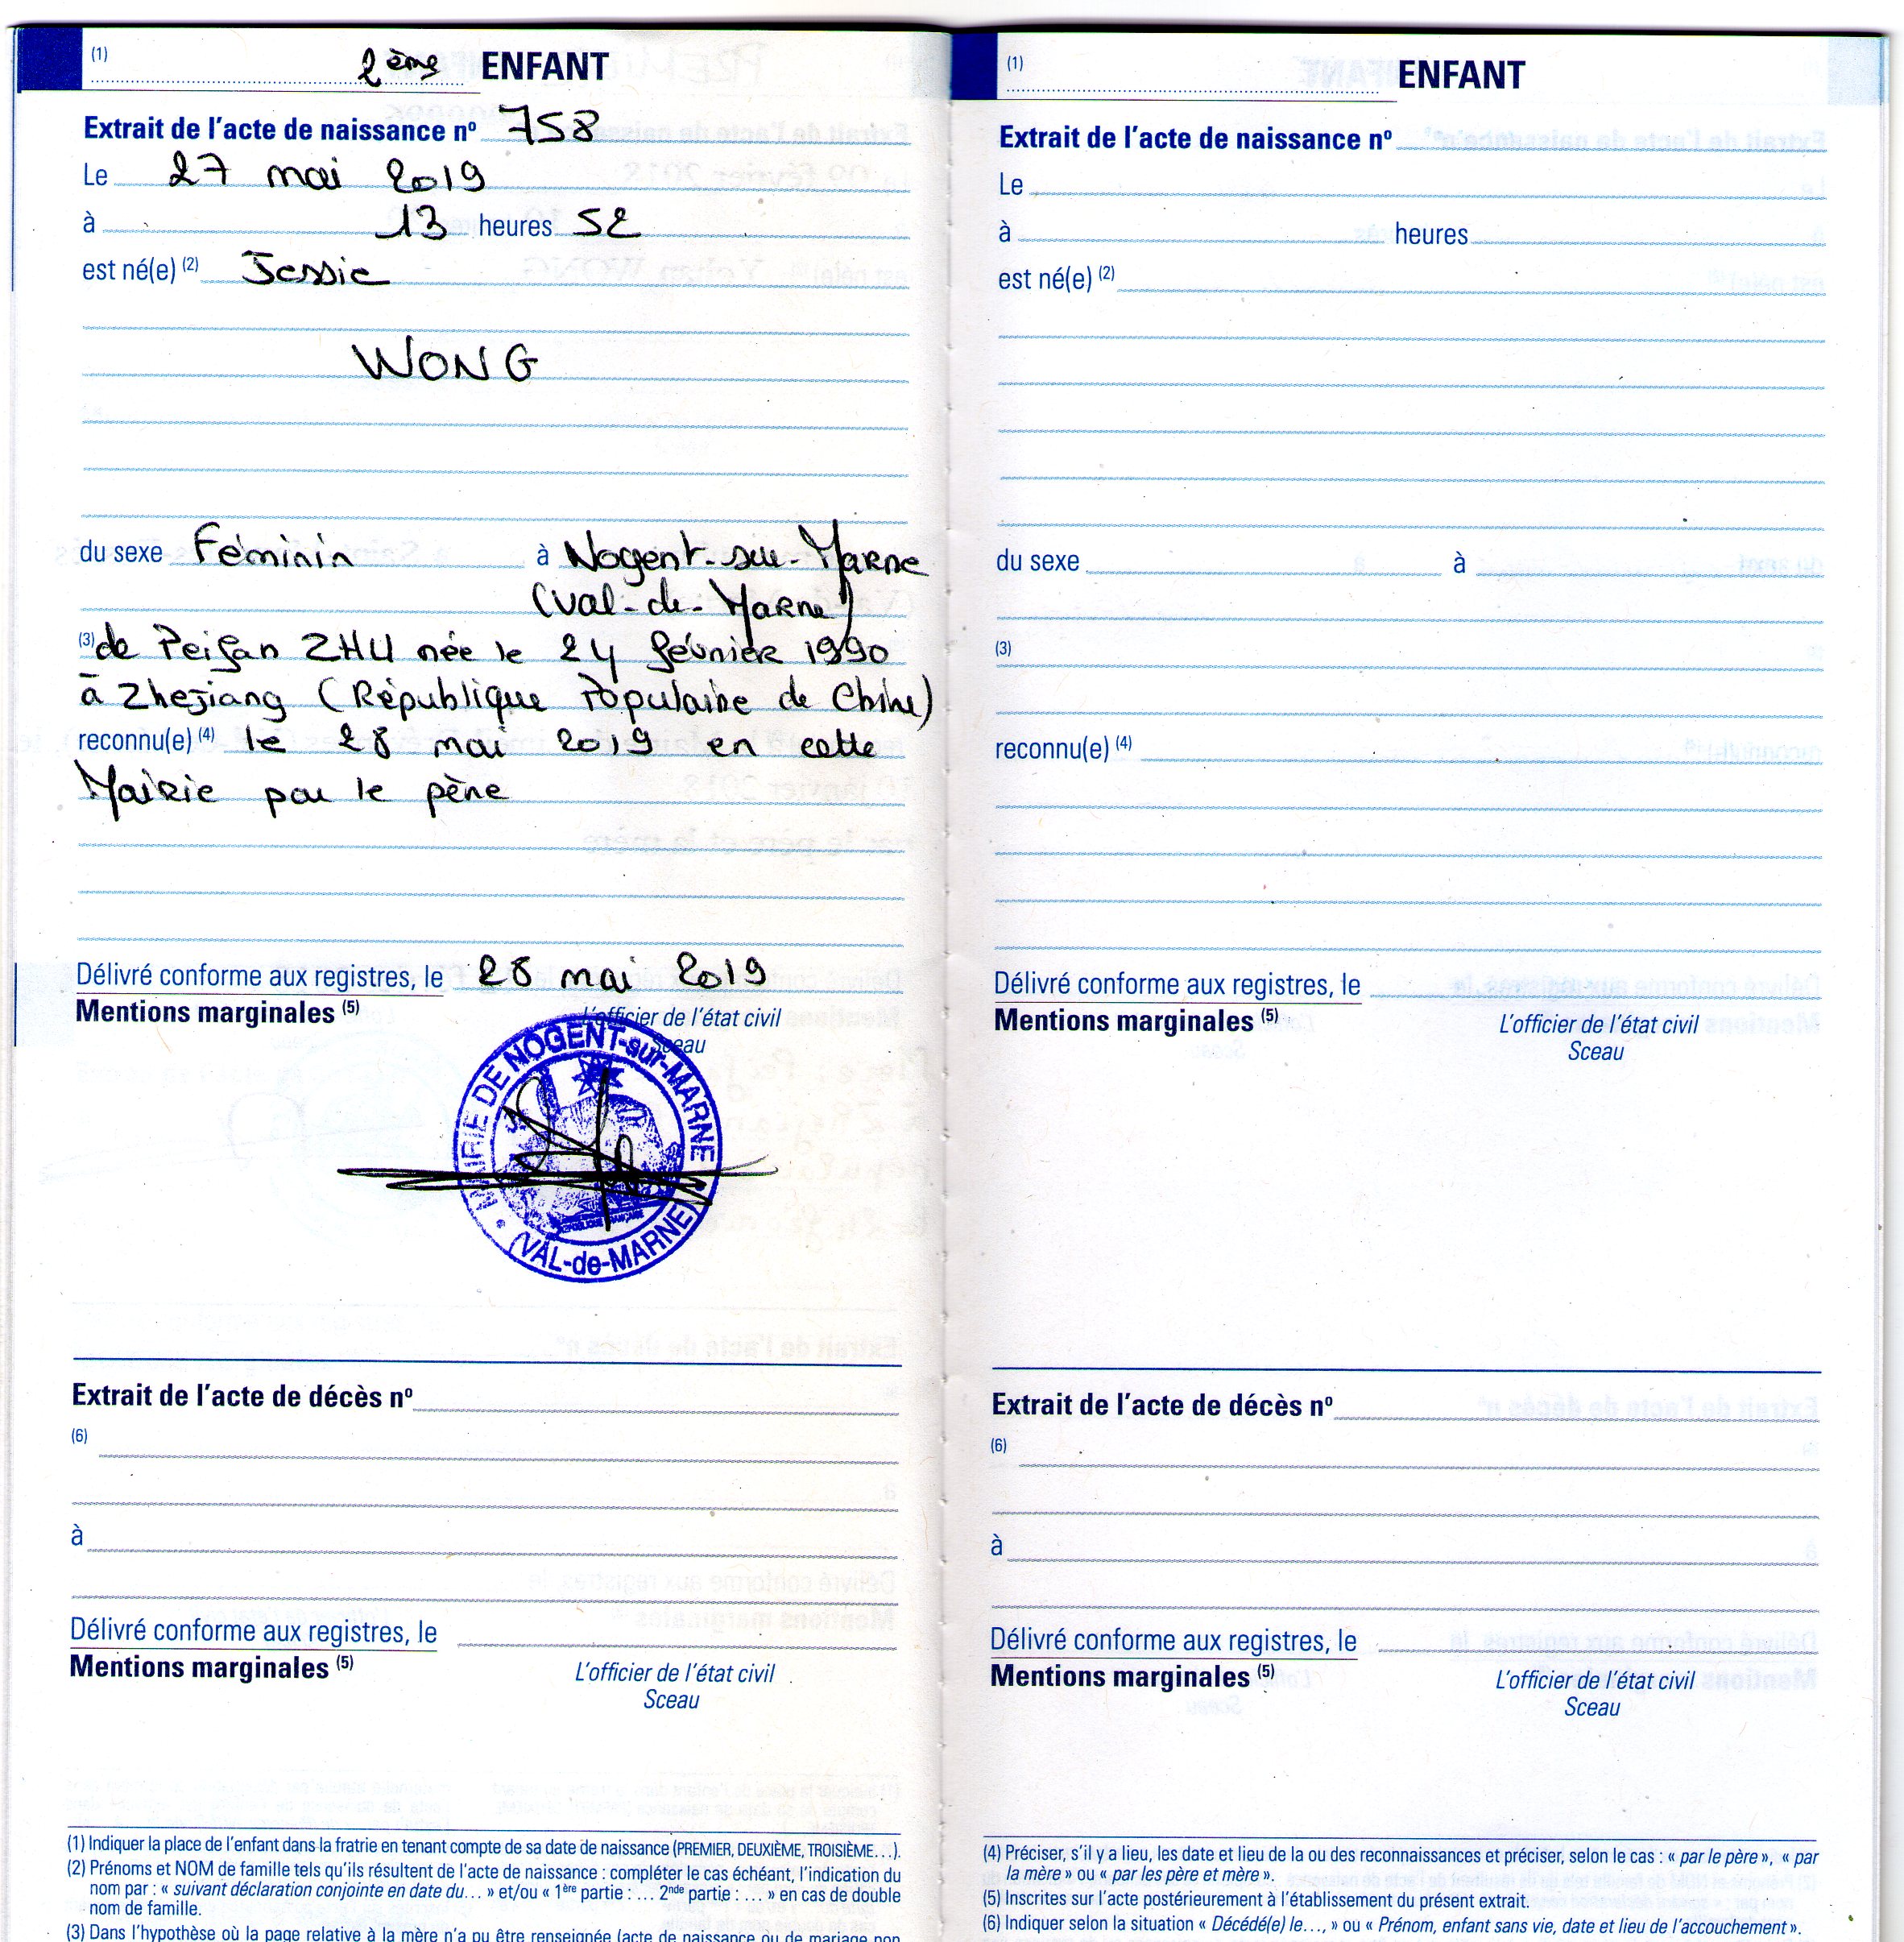 (1) 2ème ENFANT
Extrait de l'acte de naissance nº 758
Le 27 mai 2019
à 13 heures 52
est né(e) (2) Jessie
WONG
du sexe Féminin à Nogent-sur-Marne
(Val-de-Marne)
(3) de Peifan ZHU née le 24 février 1990
à Zhejiang (République Populaire de Chine)
reconnu(e) (4) le 28 mai 2019 en cette
Mairie par le père
Délivré conforme aux registres, le 28 mai 2019
Mentions marginales (5)
L'officier de l'état civil
Sceau
MAIRIE DE NOGENT-sur-MARNE
(VAL-de-MARNE)
Extrait de l'acte de décès nº
(6)
à
Délivré conforme aux registres, le
Mentions marginales (5)
L'officier de l'état civil
Sceau
(1) Indiquer la place de l'enfant dans la fratrie en tenant compte de sa date de naissance (PREMIER, DEUXIÈME, TROISIÈME…).
(2) Prénoms et NOM de famille tels qu'ils résultent de l'acte de naissance : compléter le cas échéant, l'indication du
nom par : « suivant déclaration conjointe en date du… » et/ou « 1ère partie : … 2nde partie : … » en cas de double
nom de famille.
(3) Dans l'hypothèse où la page relative à la mère n'a pu être renseignée (acte de naissance ou de mariage non
(1) ENFANT
Extrait de l'acte de naissance nº
Le
à heures
est né(e) (2)
du sexe à
(3)
reconnu(e) (4)
Délivré conforme aux registres, le
Mentions marginales (5)
L'officier de l'état civil
Sceau
Extrait de l'acte de décès nº
(6)
à
Délivré conforme aux registres, le
Mentions marginales (5)
L'officier de l'état civil
Sceau
(4) Préciser, s'il y a lieu, les date et lieu de la ou des reconnaissances et préciser, selon le cas : « par le père », « par
la mère » ou « par les père et mère ».
(5) Inscrites sur l'acte postérieurement à l'établissement du présent extrait.
(6) Indiquer selon la situation « Décédé(e) le…, » ou « Prénom, enfant sans vie, date et lieu de l'accouchement ».